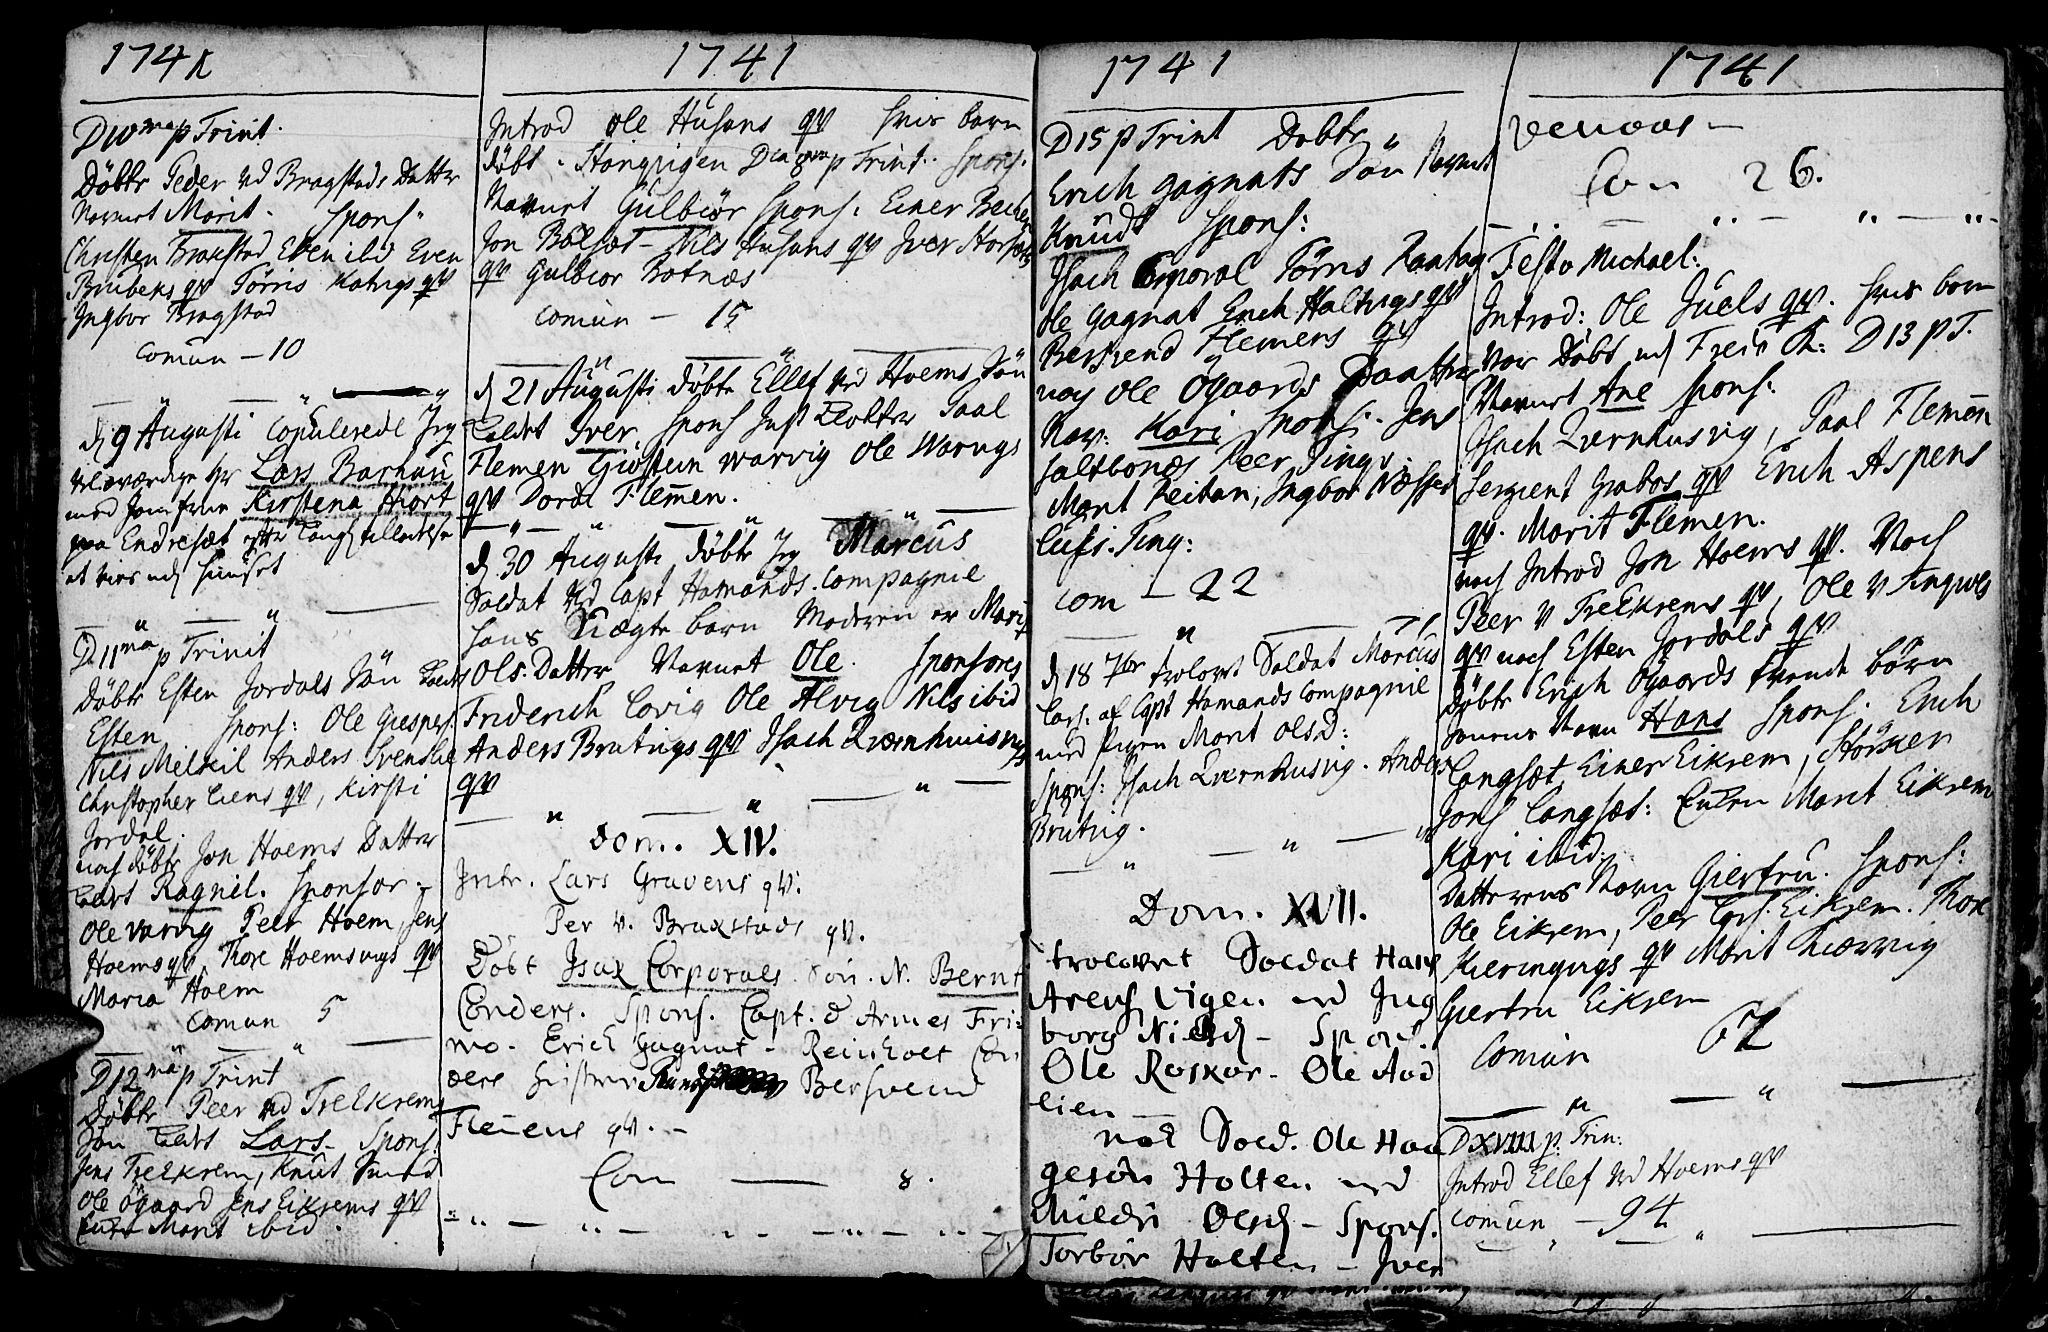 1741
D 10ma p Trinit.
Döbtr Peder ved Bragstads Datter
Navnet Marit. Spons.
Christen Brakstad, Even ibid Even
Brubeks qv Törris Katvigs qv
Ingbor Bragstad
Comun - 10
d 9 Augusti Copulerede Jeg
velærværdige hr Lars Barhau
med Jomfrue Kirstena Hiort
paa Endresæt efter Kongl tilladelse
at vies udj huuset
D 11ma p Trinit
Döbtr Esten Jordals Sön kaldt
Esten Spons: Ole Giesper
Nils Melkil Anders Svenske
Christopher Liens qv, Kirsti
Jordal.
noch döbtr Jon Hoems Datter
kaldt Ragnil. Sponsor.
Ole varvig Peer Hoem, Jens
Hoems qv, Thore Hoemsvigs qv
Maria Hoem
Comun 5
D 12ma p Trint
Döbtr Peer ved Trelkrems
Sön kaldt Lars. Spons.
Jens Trelkrem, Knut Smed
Ole Ögaard Jens Eikrems qv
Marit ibid.
1741
Introd Ole Husans qv hvis barn
döbt Stongvigen D 8va p Trint. Spons.
Navnet Gulbiör Spons: Einer
Jon Bolsæt - Nils Husans qv Iver
qv Gulbior Botnæs
Comun - 15
d 21 Augusti döbtr Ellef ved Hoems Sön
kaldet Iver. Spons Just Paal
Flemen Giostein warvig Ole Warvigs
qv Dordi Flemen.
d 30 Augusti döbtr Jeg Marcus
Soldat ved Capt Hamands Compagnie
hans Uægte barn Moderen er Marit
Ols: Datter Navnet Ole. Sponsores
Friderich Covig Ole Alvig Nils ibid
Anders Brutvigs qv Isach Kvernhuusvigs
qv
Dom. XIV.
Intr. Lars Gravens qv.
Per v. Braxstads qv.
Döbt Isax Corporals Sön. N. Bernt
Conders. Spons. Capt. d Armes Fri-
mo. Erich Gagnat - Reinholt Con
ders hustrue Bersvend
Flemens qv. -
Com - 8.
1741
D 15 p Trint Döbtr
Erich Gagnats Sön Navnet
Knudt Spons:
Isach Corporal Törris
Ole Gagnat Erich Haltvigs qv
Bersvend Flemens qv
noch Ole Ögaards Daatter
Nav: Kari Spons. Jens
Saltbonæs Peer Tings.
Marit Reitan, Ingbor Næsset
Ting:
Com - 22
d 18 7br trolovet Soldat Marcus
Lars: af Capt Hamands Compagnie
med Pigen Marit OlsD:
Spons: Isach Kvernhusvig. Anders
Brutvig.
Dom. XVII.
trolovet Soldat Hans
Arens Vigen med Ing
borg Nielsd - Spons.
Ole Roskar - Ole Aod
lien -
nok Sold. Ole Haa
gesön Holten med
Mildri Olsd - Spons.
Torbör Holten - Iver
1741
Com 26.
Festo Michael:
Introd: Ole Juels qv. hvis barn
var Döbt udj Freis K: D 13 p T.
Navnet Ane Spons:
Isach Kvernhusvig, Paal Flemen
Sergient Grabos qv Erich Aspens
qv. Marit Flemen.
noch Introd Jon Hoems qv. Noch
Peer v Trelkrems qv, Ole v Tingvols
qv noch Esten Jordals qv
Döbtr Erich Ögaards tvende börn
Sönens Navn Hans Spons: Erich
Langsæt, Einer Eikrem, Störker
Jons Langsæt: Marit Eikrem
Kari ibid.
Datterens Navn Giertru. Spons:
Ole Eikrem, Peer Lars. Eikrem. Thore
Kieringvigs qv Marit
Giertru Eikrem
Comun 62
D XVIII p. Trin:
Introd Ellef ved Hoems qv
Comun - 94